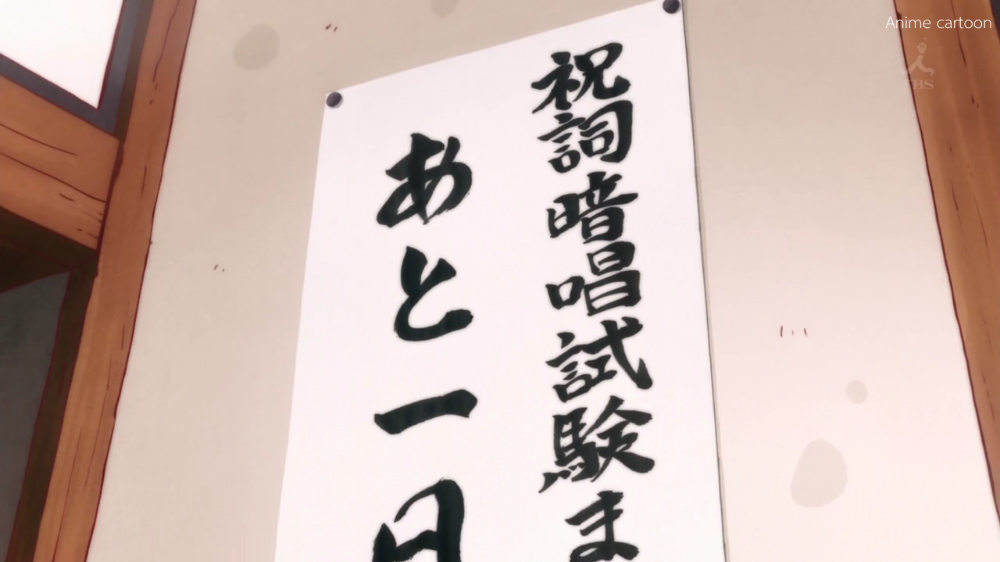 Anime cartoon
TBS
祝詞暗唱試験ま
あと一日